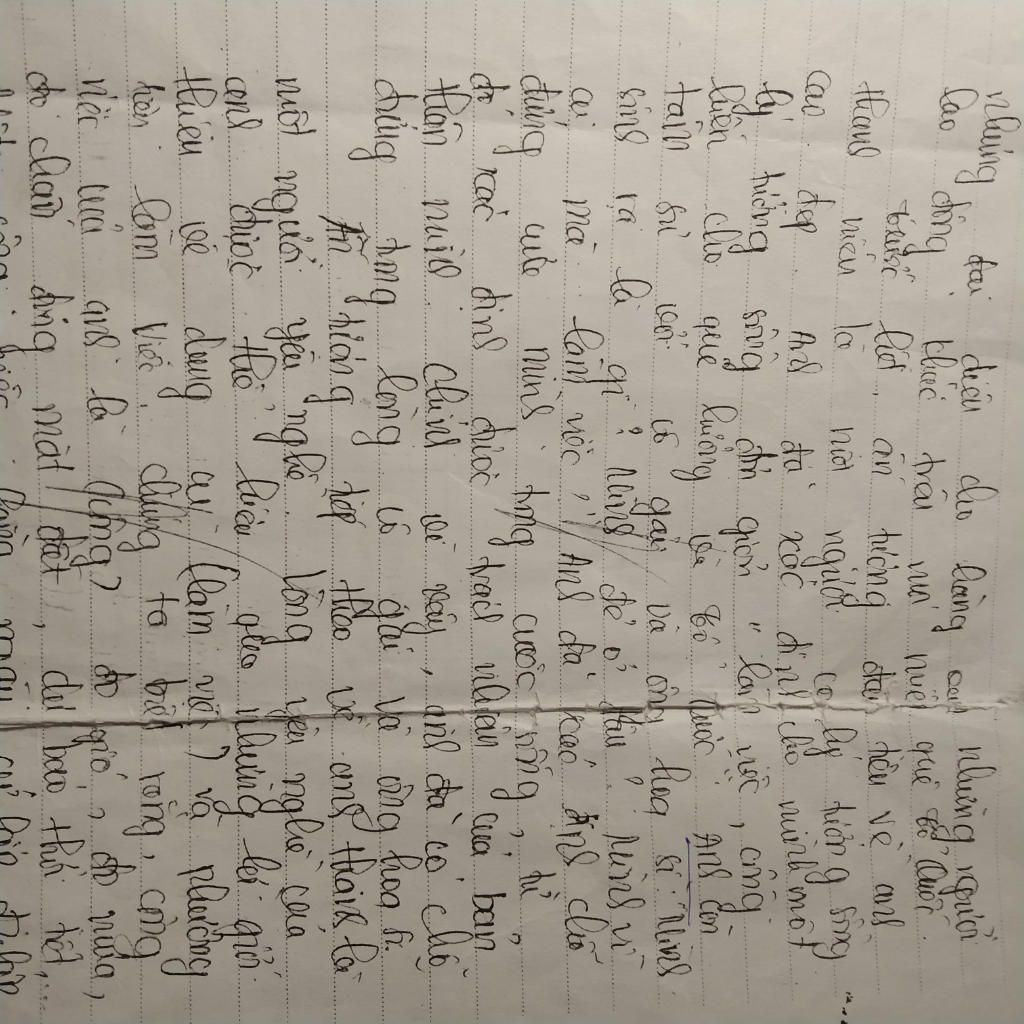 những đại diện cho hàng vạn những người
lao động khác trên núi miền quê Tổ Quốc.
trước hết, ấn tượng đầu tiên về anh
thanh niên là một người có lý tưởng sống
cao đẹp. Anh đã xác định cho mình một
lý tưởng sống đơn giản "làm việc, cống
hiến cho quê hương và tổ quốc". Anh còn
tâm sự với cô gái và ông hoạ sĩ: Mình
sinh ra là gì? Mình đẻ ở đâu, mình vì
ai mà làm việc, Anh đã xác định chỗ
đứng của mình trong cuộc sống, từ
đó xác định được trách nhiệm của bản
thân mình. chính vì vậy, anh đã có chỗ
đứng trong lòng cô gái và ông hoạ sĩ.
Ấn tượng tiếp theo về anh thanh là
một người yêu nghề. lòng yêu nghề của
anh được thể hiện qua những lời giới
thiệu về dụng cụ (làm việc) và phương
hèn làm việc. chúng ta biết rằng, công
việc của anh là đo gió, đo mưa,
đo chấn động mặt đất, dự báo thời tiết, ...